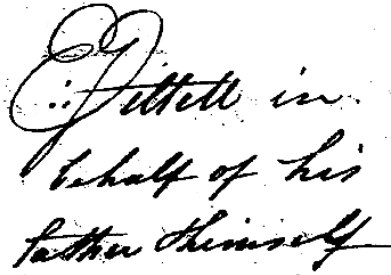 E. Gillett in
behalf of his
father & himself